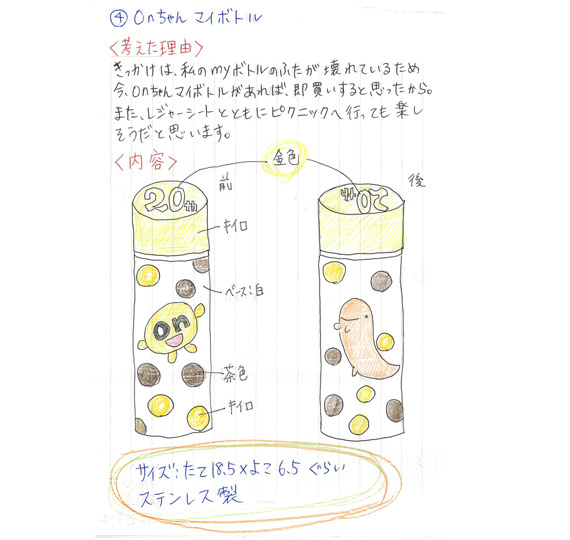 ④ Onちゃん マイボトル
<考えた理由>
きっかけは、私のmyボトルのふたが壊れているため
今、Onちゃんマイボトルがあれば、即買いすると思ったから。
また、レジャーシートとともにピクニックへ行っても楽し
そうだと思います。
<内容>
金色
前
後
20th
20th
キイロ
ベース:白
on
茶色
キイロ
サイズ:たて18.5×よこ6.5ぐらい
ステンレス製